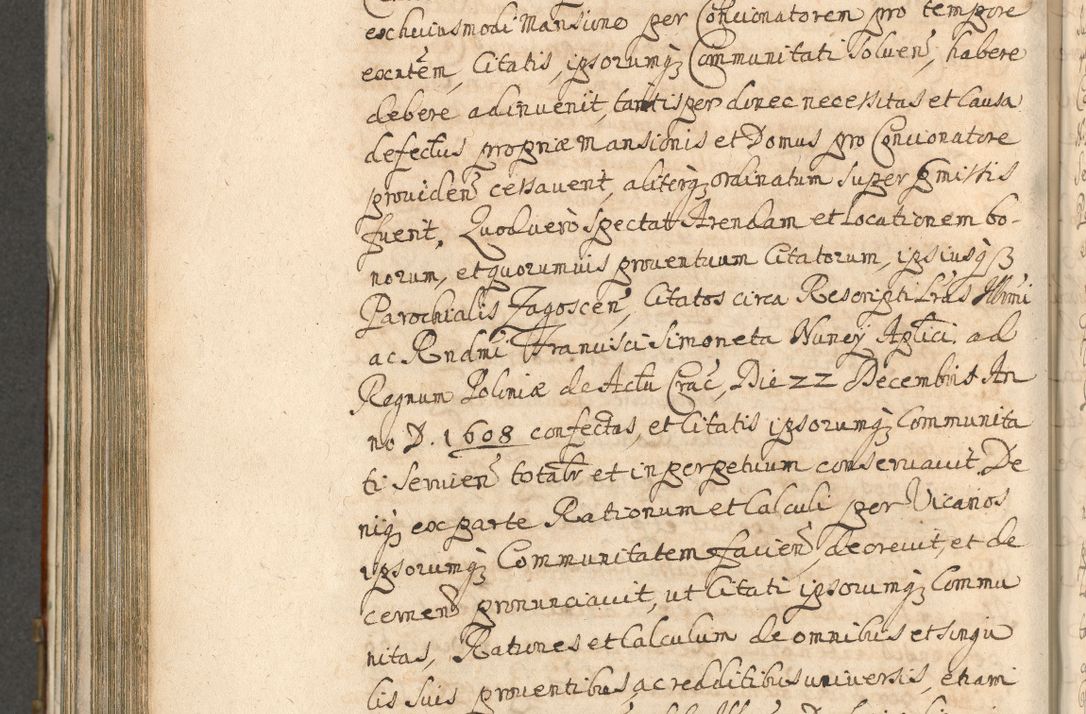 ex huiusmodi Mansione per Concionatorem pro tempore
existem̃, Citatis, ipsorumq̃ Communitati Solueñ, habere
debere adinuenit, tantisper donec necessitas et Causa
defectus propriæ Mansionis et Domus pro Concionatore
prouideñ cessauerit, aliterq̃ ordinatum super p̃missis
fuerit. Quod verò spectat Arendam et locationem bo-
norum, et quorumuis prouentuum Citatorum, ipsiusq̃
Parochialis Zagosceñ, Citatos circa Rescripti Lr̃as Illr̃mi
ac Rndm̃i Francisci Simoneta Nuncÿ Aplici. ad
Regnum Poloniæ de Actu Crac̃, Die 22 Decembris An
no D. 1608 confectas, et Citatis ipsorumq̃ Communita
ti Seruieñ totalr̃ et in perpetuum conseruauit. De
niq̃ ex parte Rationum et Calculi per Vicarios
ipsorumq̃ Communitatem facieñ, decreuit, et de
cerneñ pronunciauit, ut Citati ipsorumq̃ Commu
nitas, Rationes et Calculum de omnibus et singu
lis suis prouentibus, ac redditibus uniuersis, etiam